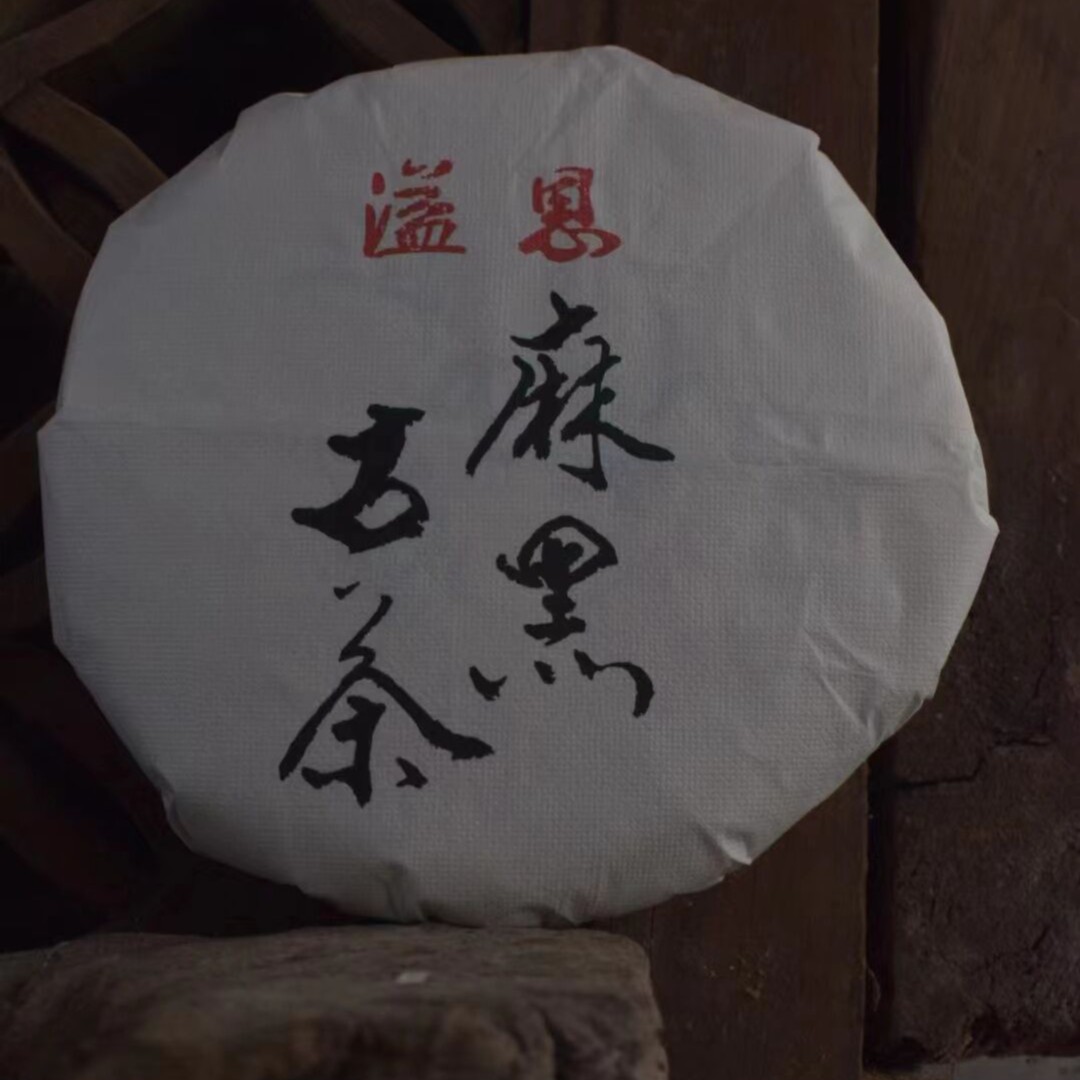 恩溢
麻黑
古茶